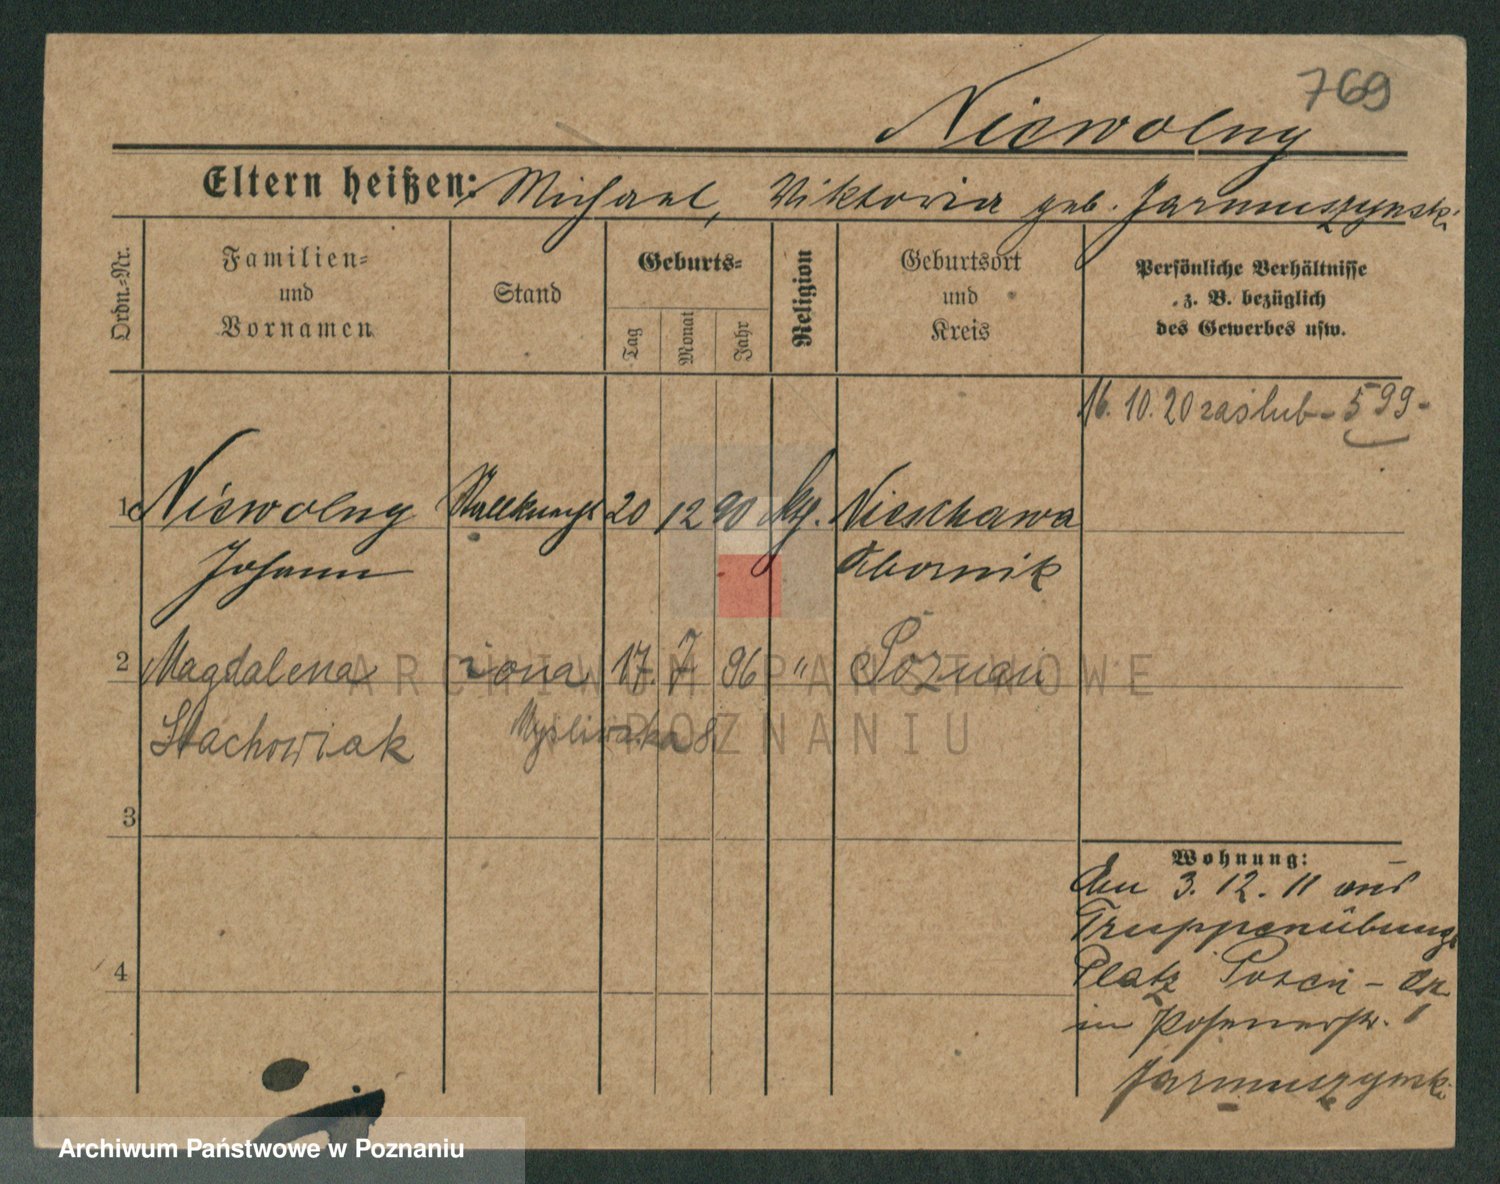 769
Niewolny
Eltern heißen: Michael, Viktoria geb. Jarmuszynski
Ordn.-Nr.
Familien-
und
Vornamen
Stand
Geburts-
Tag
Monat
Jahr
Religion
Geburtsort
und
Kreis
Persönliche Verhältnisse
z. B. bezüglich
des Gewerbes usw.
16. 10. 20 zaślub - 599-
1 Niewolny Stallknecht 20 12 90 kth. Nieschawa
Johann Obornik
2 Magdalena żona 17. 7 96 " Poznań
Stachowiak Myśliwska 8.
3
Wohnung:
3. 12. 11 aus
Truppenübungs
Platz Posen -
in Posenerstr. 1
Jarmuszynski
4
ARCHIWUM PAŃSTWOWE
W POZNANIU
Archiwum Państwowe w Poznaniu